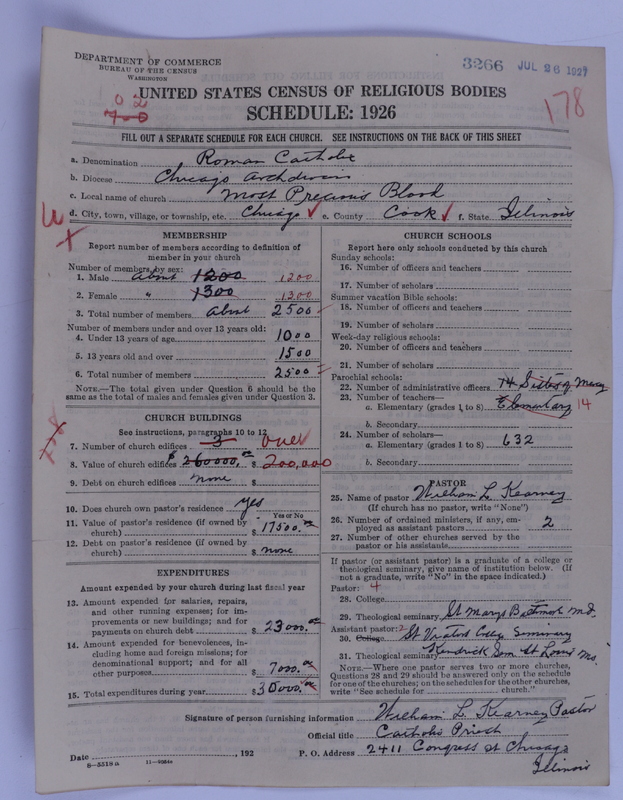 DEPARTMENT OF COMMERCE
BUREAU OF THE CENSUS
WASHINGTON
3266 JUL 26 1927
UNITED STATES CENSUS OF RELIGIOUS BODIES
SCHEDULE: 1926
178
FILL OUT A SEPARATE SCHEDULE FOR EACH CHURCH. SEE INSTRUCTIONS ON THE BACK OF THIS SHEET
a. Denomination Roman Catholic
b. Diocese Chicago
c. Local name of church Most Precious Blood
d. City, town, village, or township, etc. Chicago e. County Cook f. State Illinois
MEMBERSHIP
Report number of members according to definition of
member in your church
Number of members by sex:
1. Male About 1200 1200
2. Female " 1300 1300
3. Total number of members About 2500
Number of members under and over 13 years old:
4. Under 13 years of age 1000
5. 13 years old and over 1500
6. Total number of members 2500
NOTE.—The total given under Question 6 should be
same as the total of males and females given under Question 3.
CHURCH BUILDINGS
See instructions, paragraphs 10 to 12
7. Number of church edifices 3 one
8. Value of church edifices $ 260000.00 $ 200,000
9. Debt on church edifices none $
10. Does church own pastor's residence yes
Yes or No
11. Value of pastor's residence (if owned by
church) $ 17500.00
12. Debt on pastor's residence (if owned by
church) $ none
EXPENDITURES
Amount expended by your church during last fiscal year
13. Amount expended for salaries, repairs,
and other running expenses; for im-
provements or new buildings; and for
payments on church debt $ 23000.00
14. Amount expended for benevolences, in-
cluding home and foreign missions; for
denominational support; and for all
other purposes $ 7000.00
15. Total expenditures during year $ 30000.00
CHURCH SCHOOLS
Report here only schools conducted by this church
Sunday schools:
16. Number of officers and teachers
17. Number of scholars
Summer vacation Bible schools:
18. Number of officers and teachers
19. Number of scholars
Week-day religious schools:
20. Number of officers and teachers
21. Number of scholars
Parochial schools:
22. Number of administrative officers 14 Sisters of Mercy
23. Number of teachers—
a. Elementary (grades 1 to 8) Elementary 14
b. Secondary
24. Number of scholars—
a. Elementary (grades 1 to 8) 632
b. Secondary
PASTOR
25. Name of pastor William L. Kearney
(If church has no pastor, write "None")
26. Number of ordained ministers, if any, em-
ployed as assistant pastors 2
27. Number of other churches served by the
pastor or his assistants
If pastor (or assistant pastor) is a graduate of a college or
theological seminary, give name of institution below. (If
not a graduate, write "No" in the space indicated.)
Pastor: 4
28. College
29. Theological seminary St Marys Baltimore Md.
Assistant pastor: 2
30. College St Viators Seminary
31. Theological seminary Kendrick Sem St Louis Mo.
NOTE.—Where one pastor serves two or more churches,
Questions 28 and 29 should be answered only on the schedule
for one of the churches; on the schedules for the other churches,
write "See schedule for church."
Signature of person furnishing information William L. Kearney Pastor
Official title Catholic Priest
Date , 192 P. O. Address 2411 Congress St Chicago
Illinois
8—5518 a